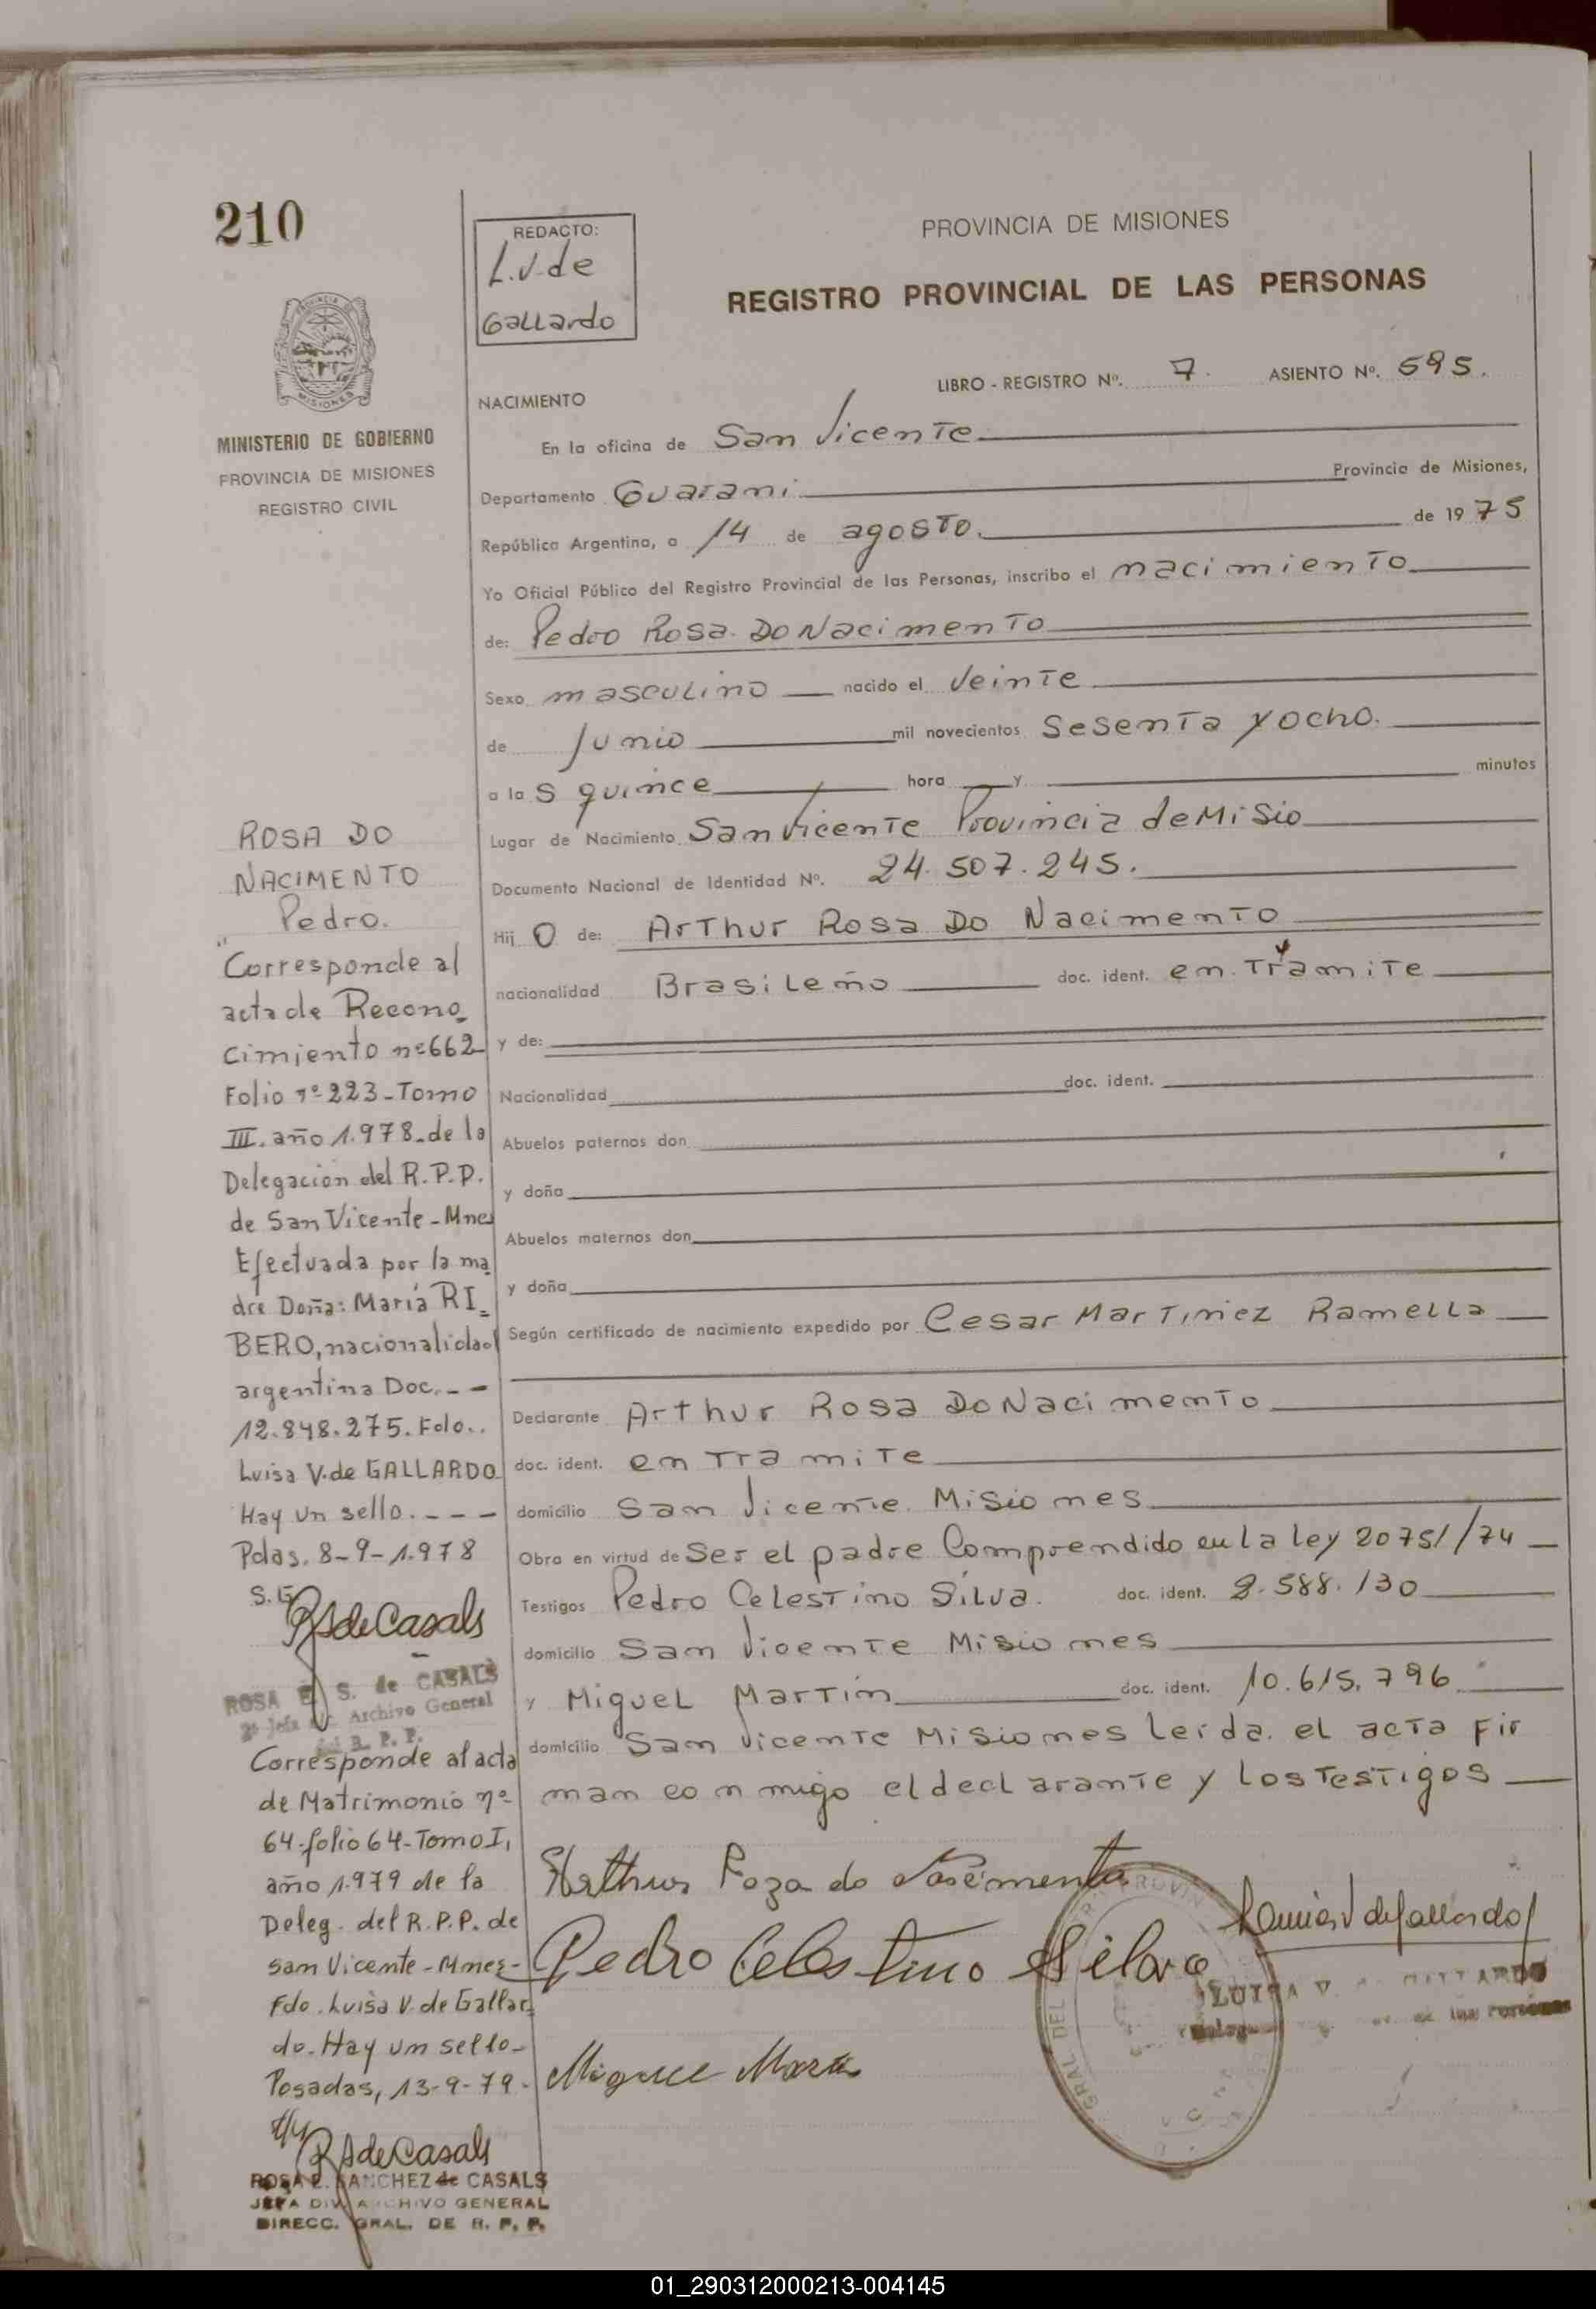 210
REDACTO:
L.V. de
Gallardo
PROVINCIA DE MISIONES
REGISTRO PROVINCIAL DE LAS PERSONAS
LIBRO - REGISTRO Nº. 7. ASIENTO Nº. 595.
PROVINCIA
MISIONES
MINISTERIO DE GOBIERNO
PROVINCIA DE MISIONES
REGISTRO CIVIL
NACIMIENTO
En la oficina de San Vicente
Departamento Guarani Provincia de Misiones,
República Argentina, a 14 de agosto. de 1975
Yo Oficial Público del Registro Provincial de las Personas, inscribo el nacimiento
de: Pedro Rosa Do Nacimento
Sexo masculino nacido el Veinte
de Junio mil novecientos Sesenta y ocho.
a las quince hora y minutos
Lugar de Nacimiento San Vicente Provincia de Misio
Documento Nacional de Identidad Nº. 24.507.245.
Hijo de: Arthur Rosa Do Nacimento
nacionalidad Brasileño doc. ident. en Tramite
y de:
Nacionalidad doc. ident.
Abuelos paternos don
y doña
Abuelos maternos don
y doña
Según certificado de nacimiento expedido por Cesar Martinez Ramella
Declarante Arthur Rosa Do Nacimento
doc. ident. en Tramite
domicilio San Vicente Misiones
Obra en virtud de Ser el padre Comprendido en La Ley 20751/74
Testigos Pedro Celestino Silva. doc. ident. 8.588.130
domicilio San Vicente Misiones
y Miguel Martin doc. ident. 10.615.796
domicilio San Vicente Misiones Leida el acta fir
man conmigo el declarante y los Testigos
Arthur Roza do Nascimento
Pedro Celestino Silva
Miguel Martin
ROSA DO
NACIMENTO
Pedro.
"Corresponde al
acta de Recono_
cimiento nº 662
Folio nº 223-Tomo
III. año 1.978. de la
Delegacion del R.P.P.
de San Vicente-Mnes
Efectuada por la ma_
dre Doña: María RI_
BERO, nacionalidad
argentina Doc. - -
12.848.275. Fdo..
Luisa V. de GALLARDO
Hay un sello. - - -
Pdas. 8-9-1.978
RSdeCasals
ROSA E. S. de CASALS
Archivo General
R. P. P.
Corresponde al acta
de Matrimonio nº
64-folio 64-Tomo I,
año 1.979 de la
Deleg. del R.P.P. de
San Vicente-Mnes-
Fdo. Luisa V. de Gallar_
do. Hay un sello-
Posadas, 13-9-79.
RSdeCasals
ROSA E. SANCHEZ de CASALS
JEFA DIV. ARCHIVO GENERAL
DIRECC. GRAL. DE R. P. P.
01_290312000213-004145